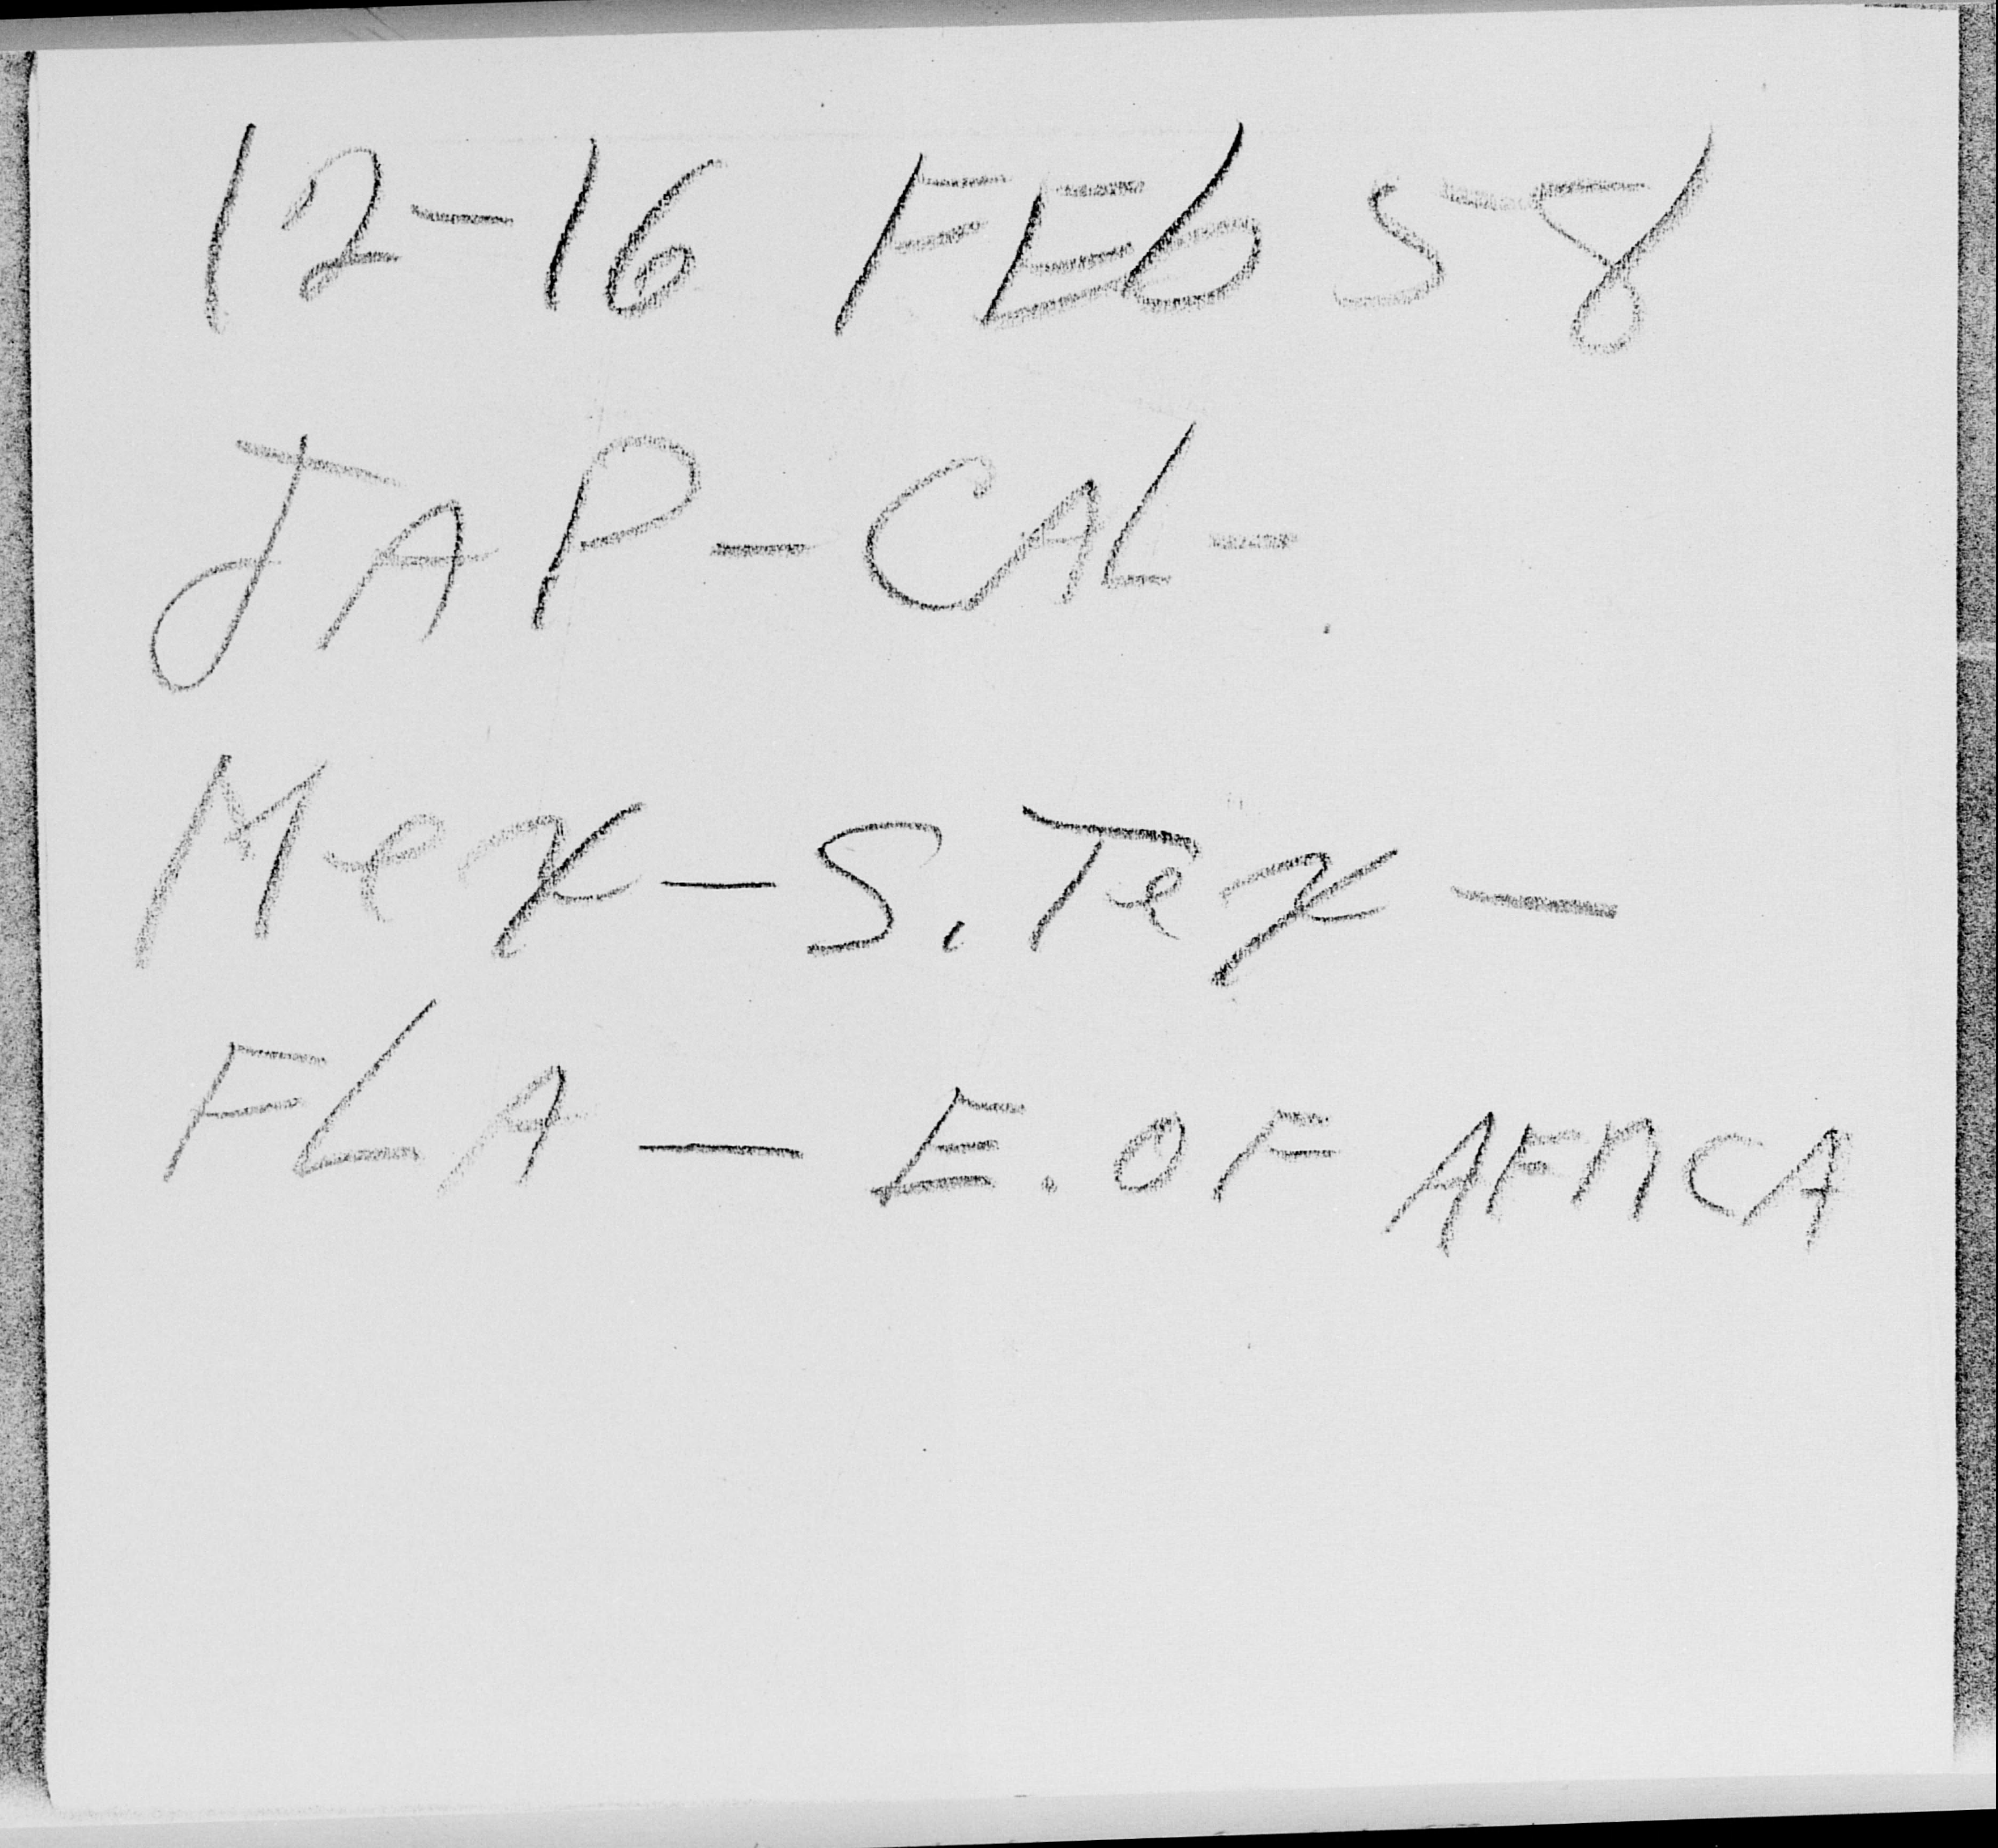 12-16 FEb 58
JAP - CAL -
Mex - S. Tex -
FLA - E. OF AFRICA